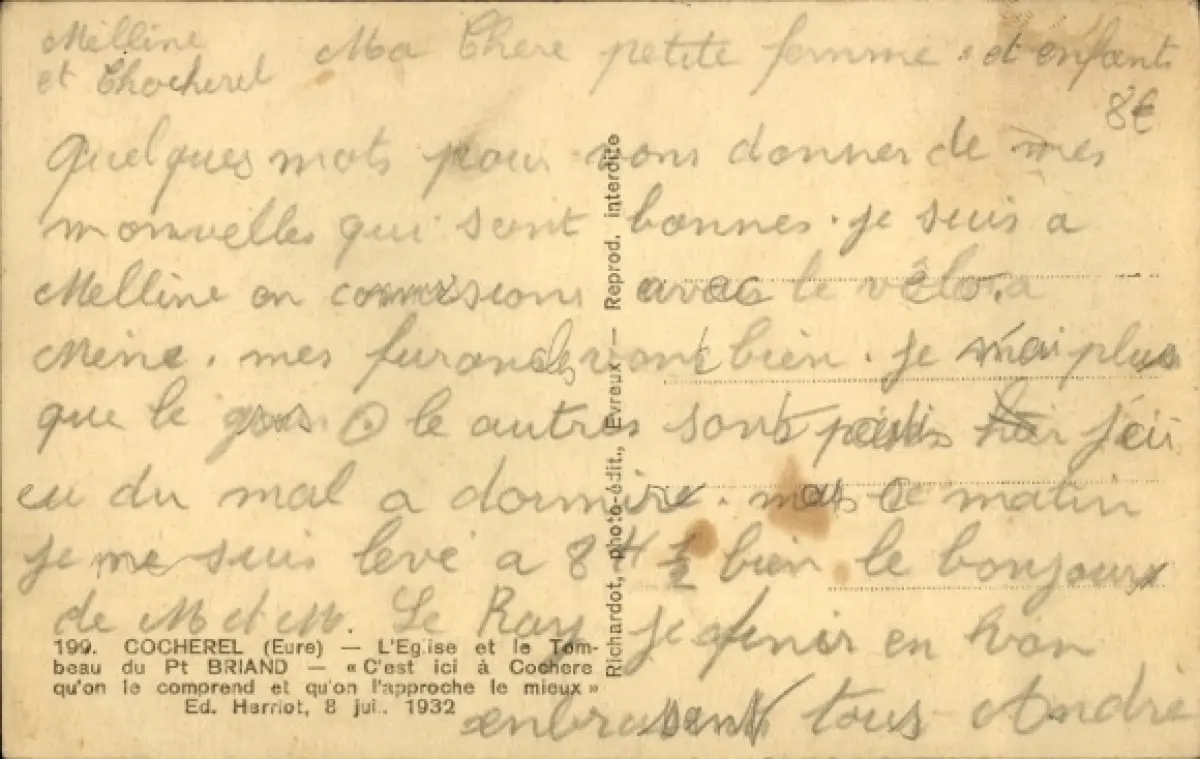 Melline
et Chocherel
Ma Chere petite femme. et enfants
8€
quelques mots pour vous donner de mes
nouvelles qui sont bonnes. je suis a
Melline en avec le vélo. a
mes furoncles vont bien. je n'ai plus
que le gros le autres sont j'ai
eu du mal a dormire. mais ce matin
je me suis levé a 8 H ½ bien le bonjour
de M et M. Le Ray je finir en
enbrasent tous André
199. COCHEREL (Eure) — L'Eglise et le Tom-
beau du Pt BRIAND — « C'est ici à Cochere
qu'on le comprend et qu'on l'approche le mieux »
Ed. Herriot, 8 jui.. 1932
Richardot, photo-édit., Evreux — Reprod. interdite